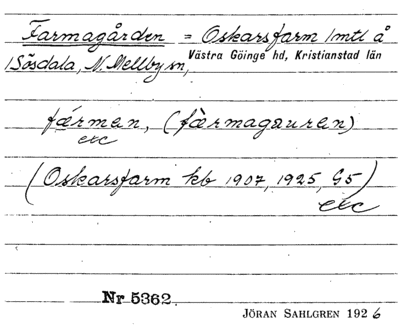 Farmagården = Oskarsfarm 1 mtl å
1 Sösdala, N. Mellby sn, Västra Göinge hd, Kristianstad län
fǽrman, (fæ̀rmagauren)
etc
(Oskarsfarm kb 1907, 1925, G5)
etc
Nr 5362.
JÖRAN SAHLGREN 1926